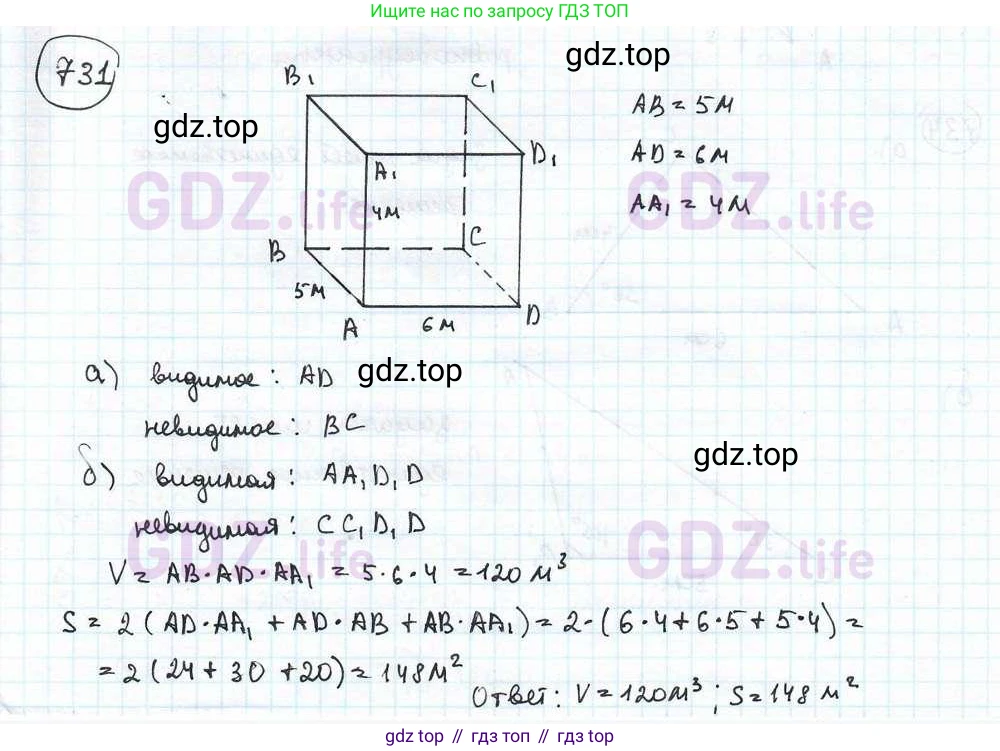 Ищите нас по запросу ГДЗ ТОП
731
gdz.top
gdz.top
B₁
C₁
A₁
D₁
4м
B
C
5м
A
6м
D
AB = 5м
AD = 6м
AA₁ = 4м
GDZ.life
GDZ.life
а) видимое: AD
gdz.top
невидимое: BC
б) видимая: AA₁D₁D
gdz.top
невидимая: CC₁D₁D
GDZ.life
GDZ.life
V = AB·AD·AA₁ = 5·6·4 = 120 м³
S = 2(AD·AA₁ + AD·AB + AB·AA₁) = 2·(6·4+6·5+5·4) =
= 2(24+30+20) = 148м²
Ответ: V = 120м³; S = 148 м²
gdz.top // гдз.top // гдз.top